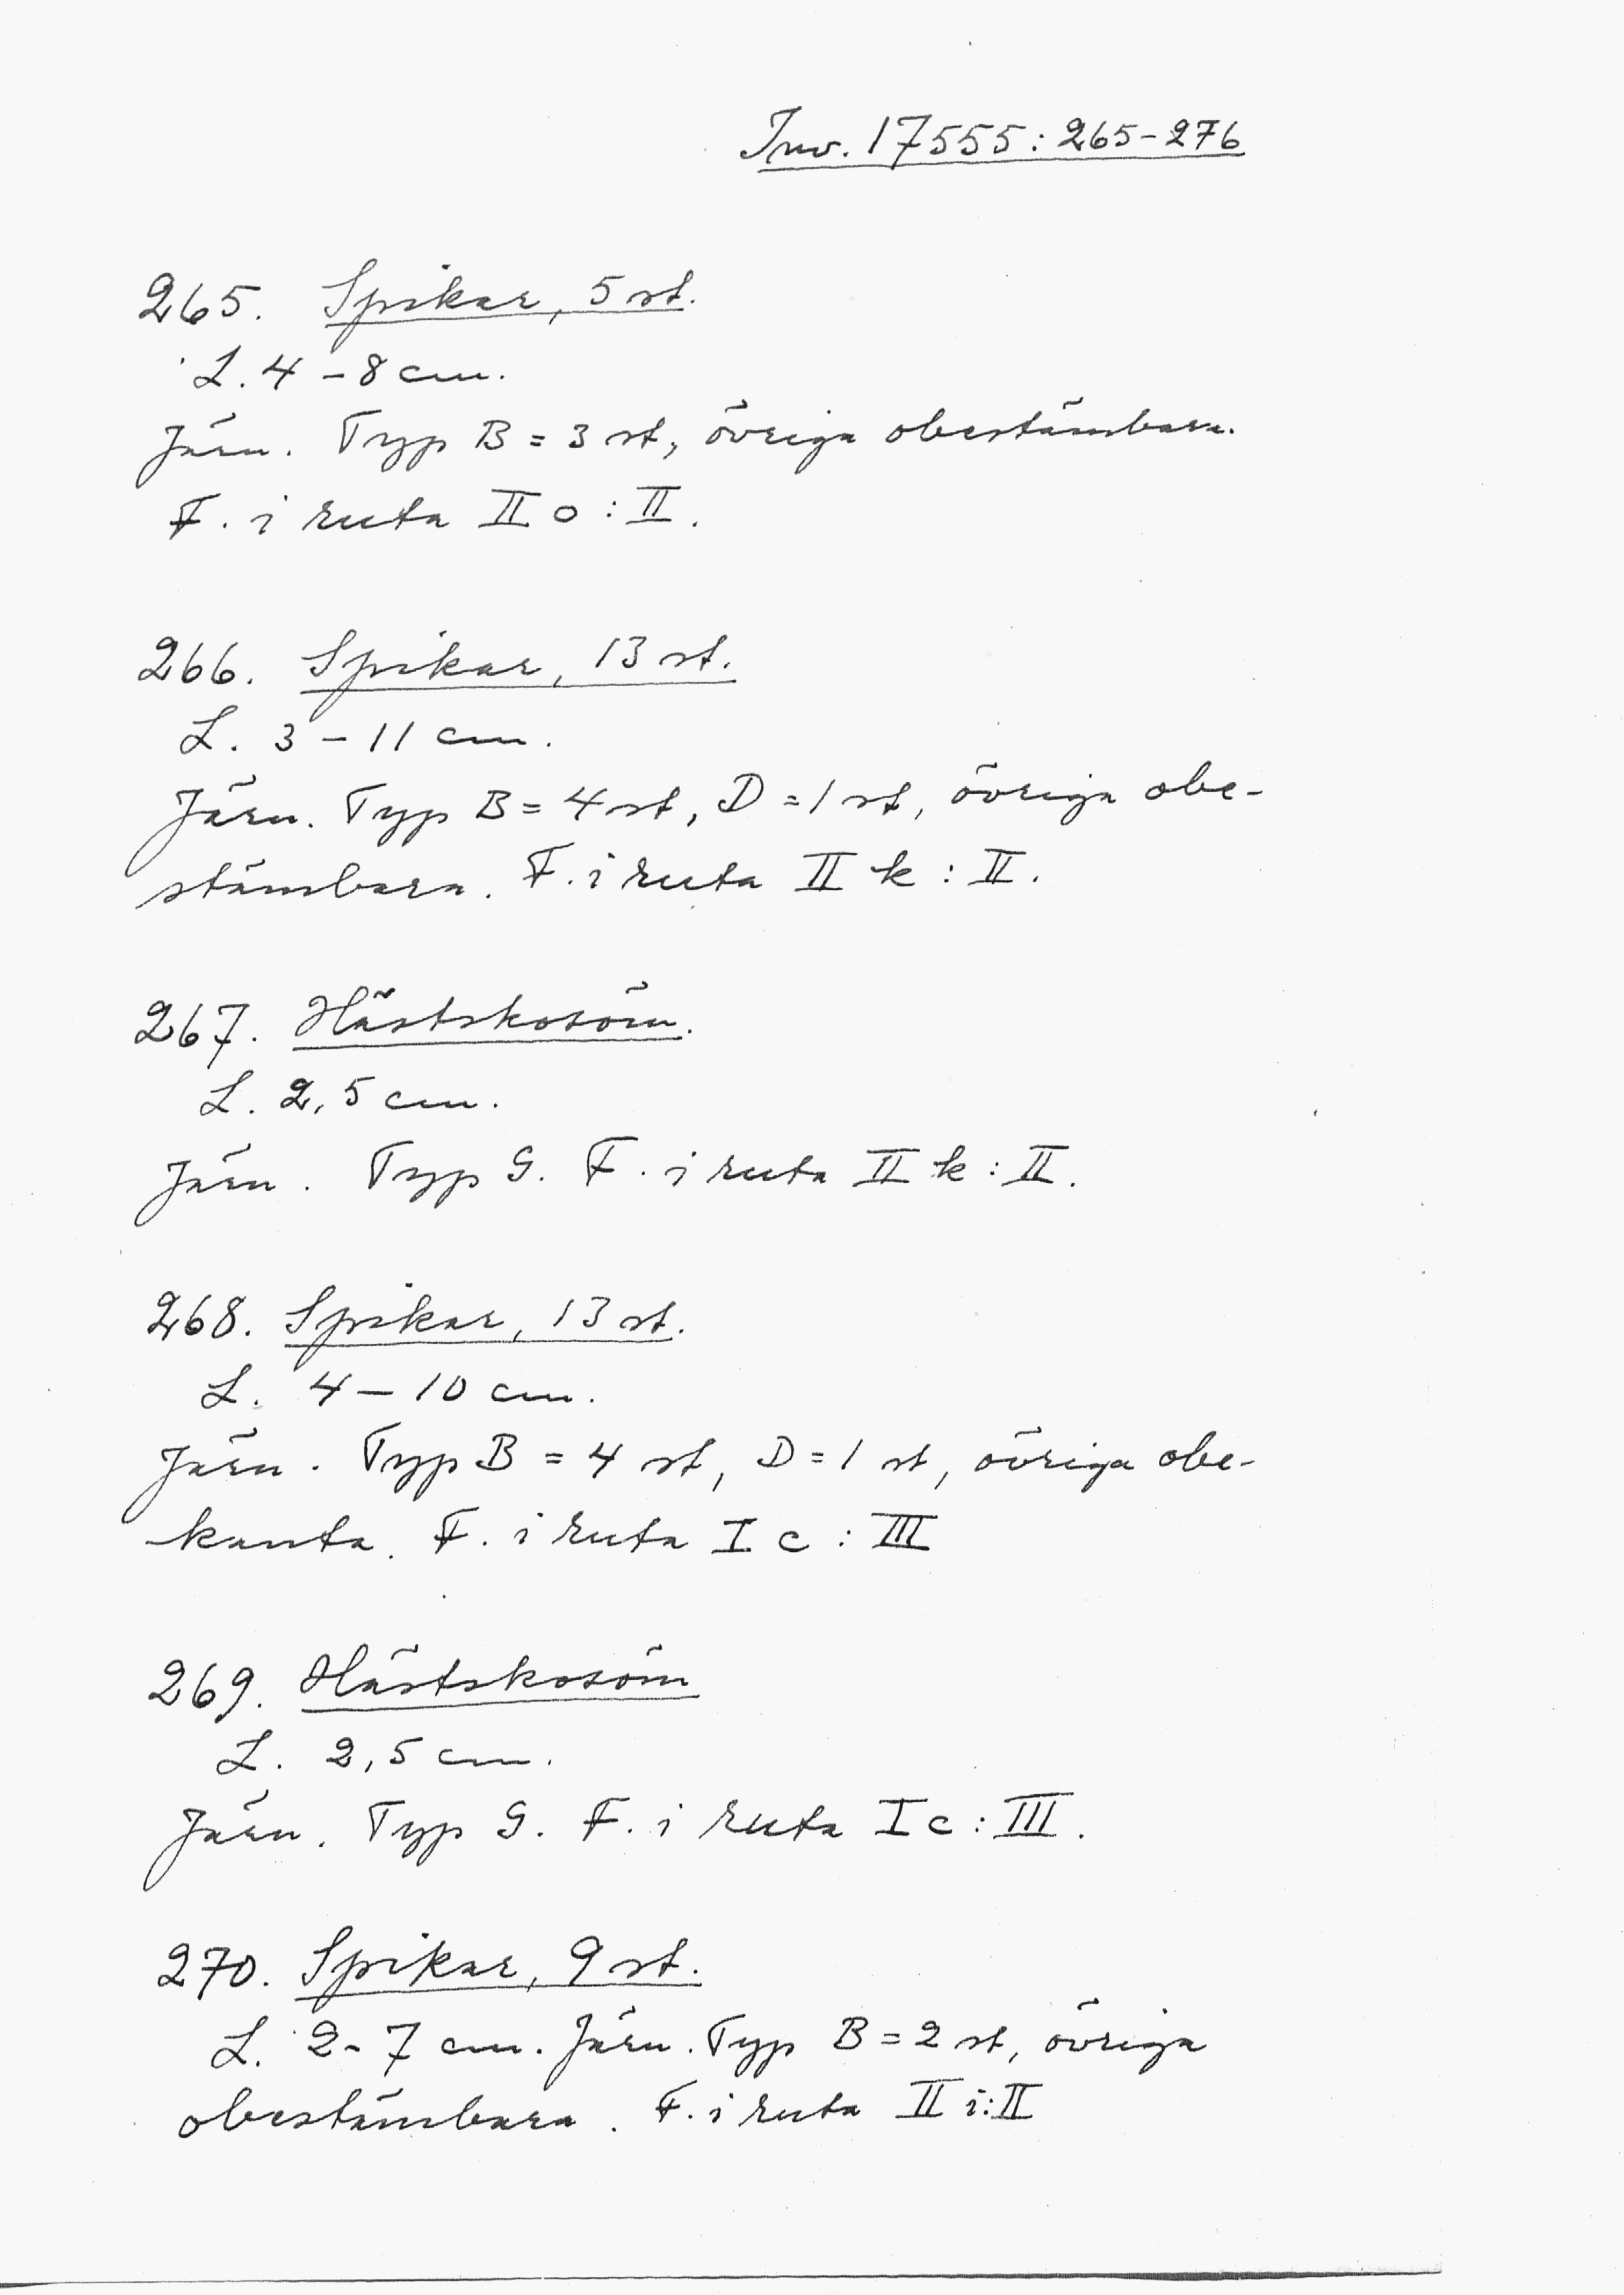 Inv. 17555:265-276
265. Spikar, 5 st.
L. 4 - 8 cm.
Järn. Typ B = 3 st, övriga obestämbara.
F. i ruta II o : II.
266. Spikar, 13 st.
L. 3 - 11 cm.
Järn. Typ B = 4 st, D = 1 st, övriga obe-
stämbara. F. i ruta II k : II.
267. Hästskosöm.
L. 2,5 cm.
Järn. Typ G. F. i ruta II k : II.
268. Spikar, 13 st.
L. 4 - 10 cm.
Järn. Typ B = 4 st, D = 1 st, övriga obe-
kanta. F. i ruta I c : III
269. Hästskosöm
L. 2,5 cm.
Järn. Typ G. F. i ruta I c : III.
270. Spikar, 9 st.
L. 2-7 cm. Järn. Typ B = 2 st, övriga
obestämbara. F. i ruta II i:II